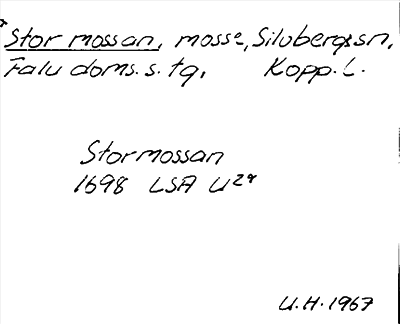 Stor mossan, mosse, Silvbergs sn,
Falu doms. s. tg. Kopp. L.
Stormossan
1698 LSA U 29
U.H. 1967